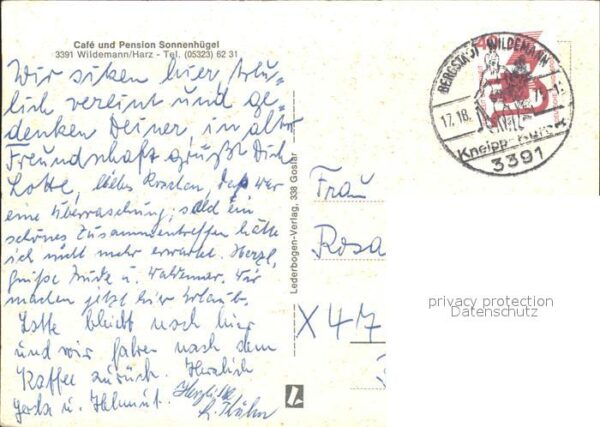 Café und Pension Sonnenhügel
3391 Wildemann/Harz - Tel. (05323) 62 31
Wir sitzen hier, fröh-
lich vereint und ge-
denken Deiner, in alter
Freundschaft grüßt Dich
Lotte, liebes das war
eine Überraschung; solch ein
schönes Zusammentreffen hätte
ich nicht mehr erwartet. Herzl.
Grüße u. Wir
machen jetzt hier Urlaub.
Lotte bleibt noch hier
und wir fahren nach dem
Kaffee zurück. Herzlich
Gerda u. Helmut. Herzliche
Lederbogen-Verlag, 338 Goslar
BERGSTADT WILDEMANN
17.18.
Kneipp-Kur
3391
Frau
Rosa
X 47
privacy protection
Datenschutz